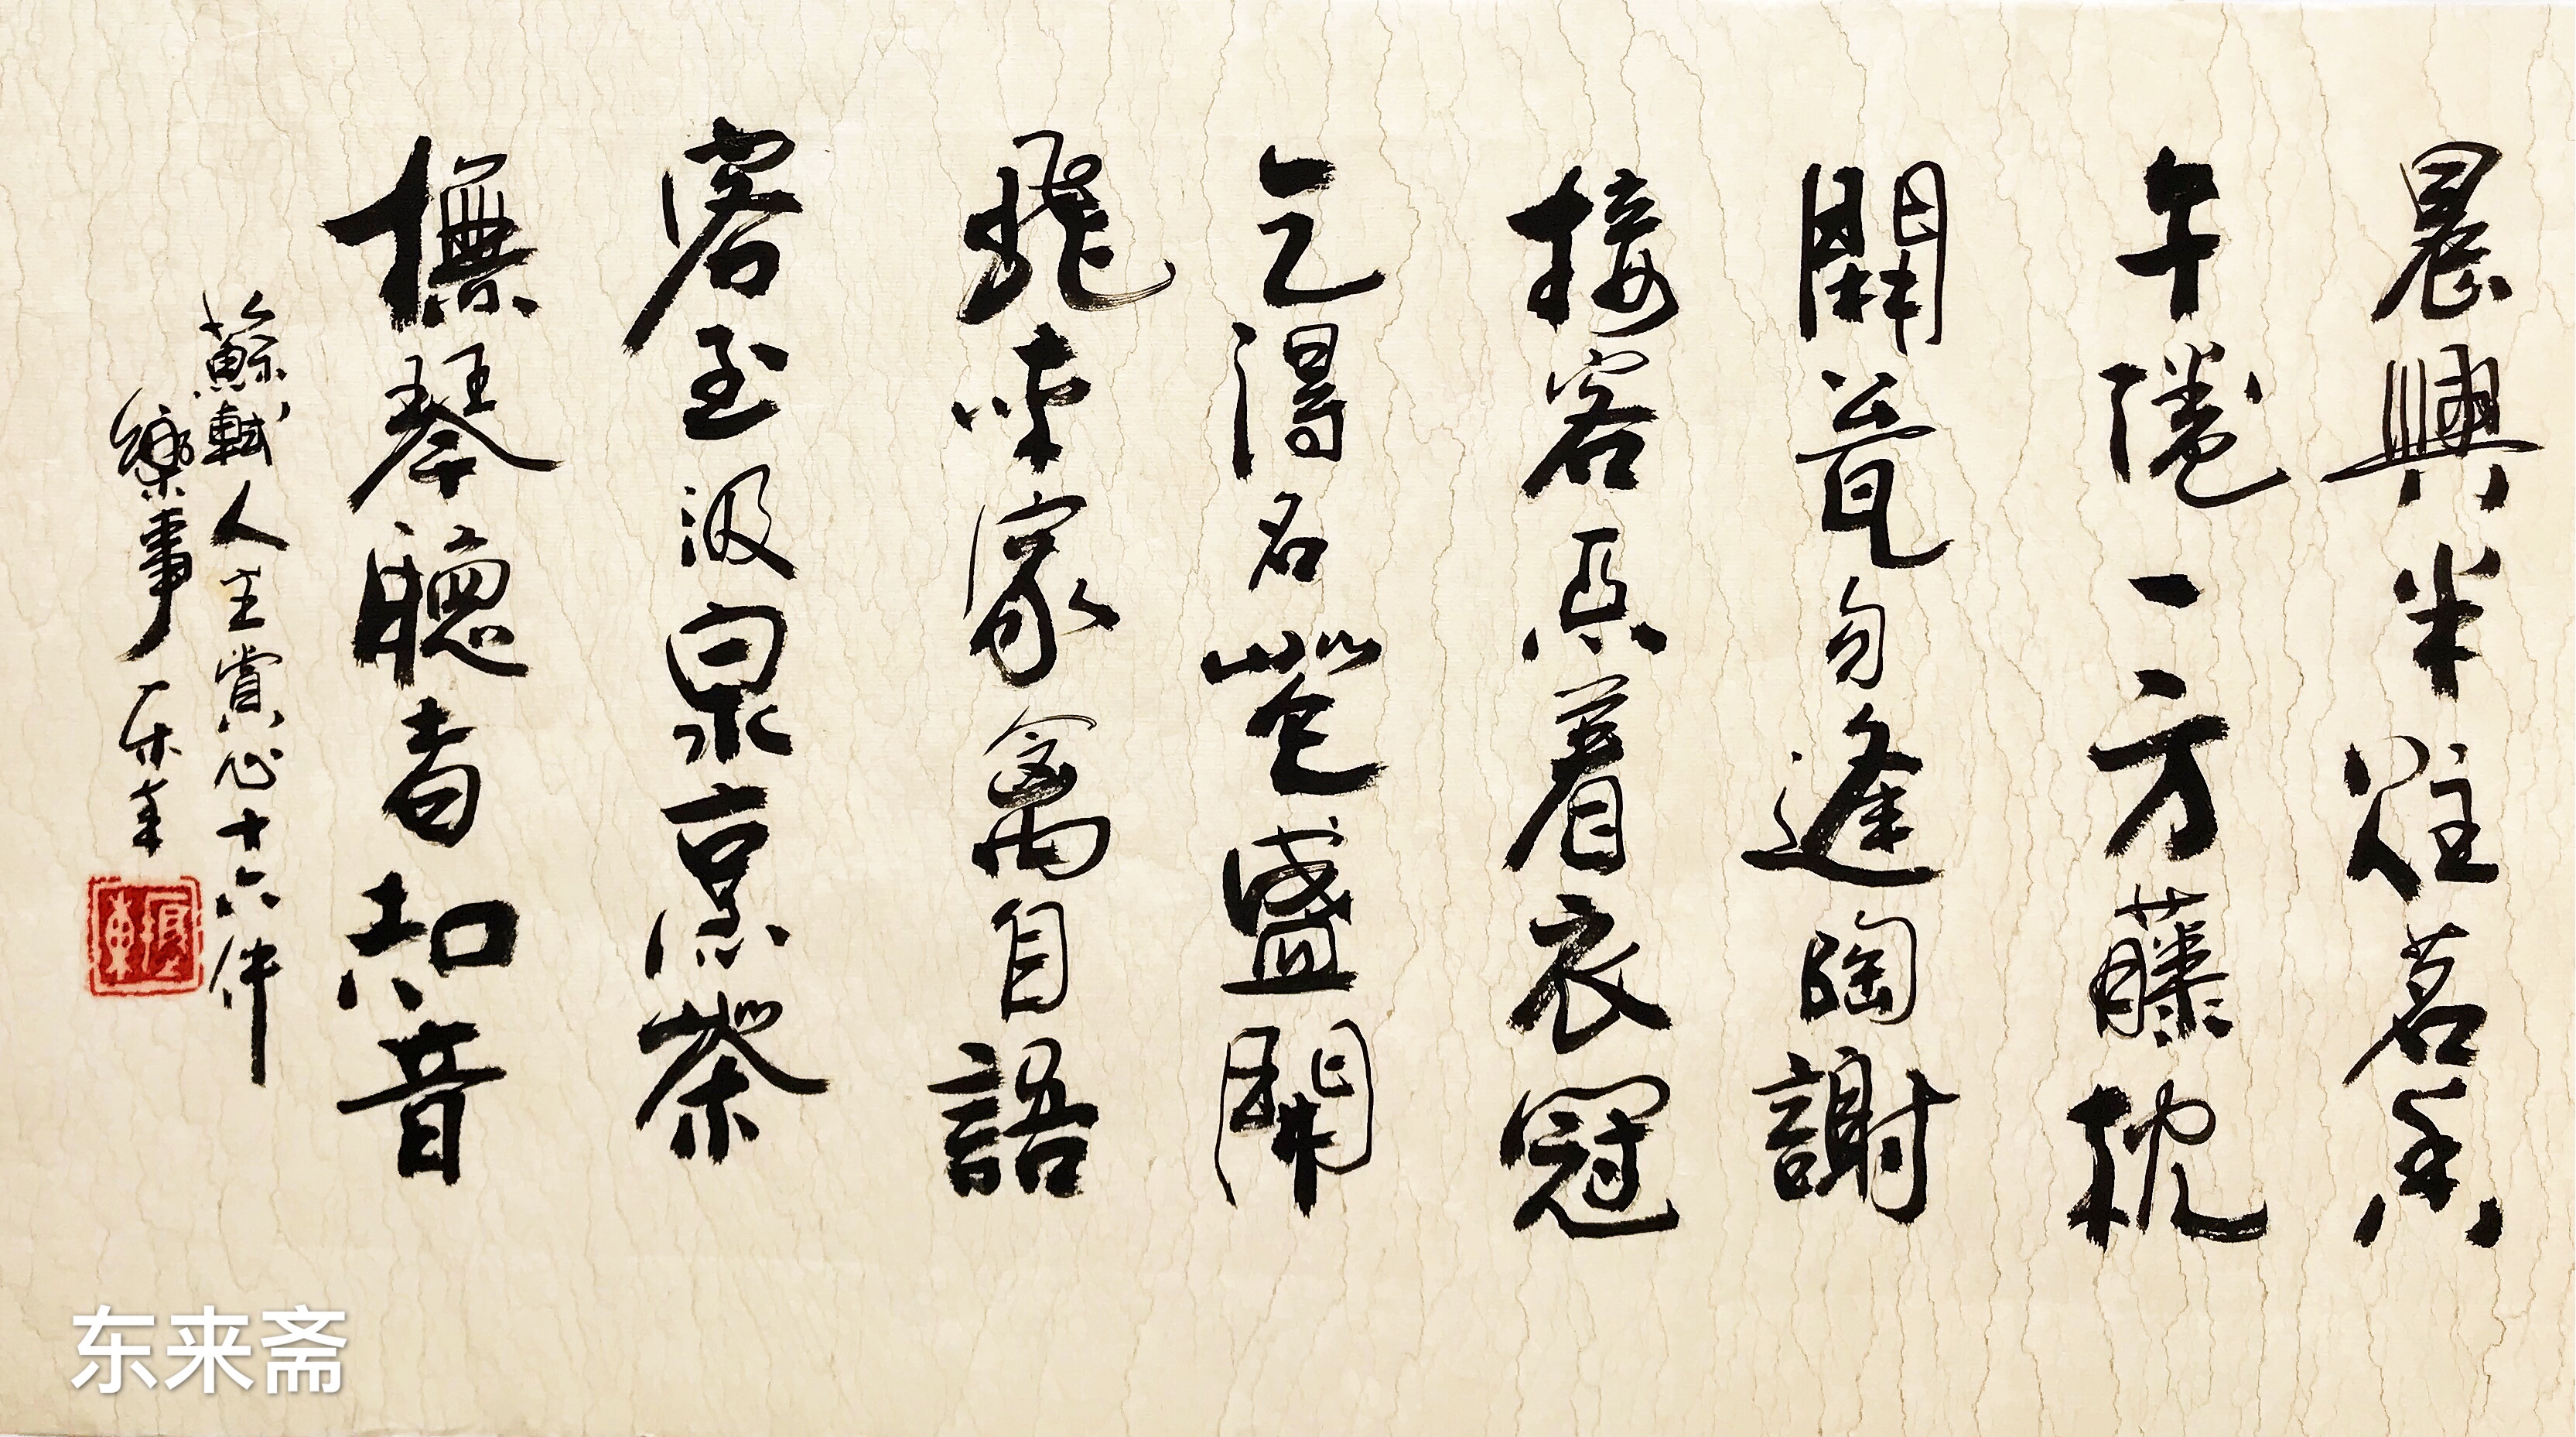 晨興半炷茗香
午倦一方藤枕
開瓮勿逢陶謝
接客不着衣冠
乞得名花盛開
飛來家禽自語
客至汲泉烹茶
撫琴聽者知音
蘇軾人生賞心十六件
樂事
东来斋